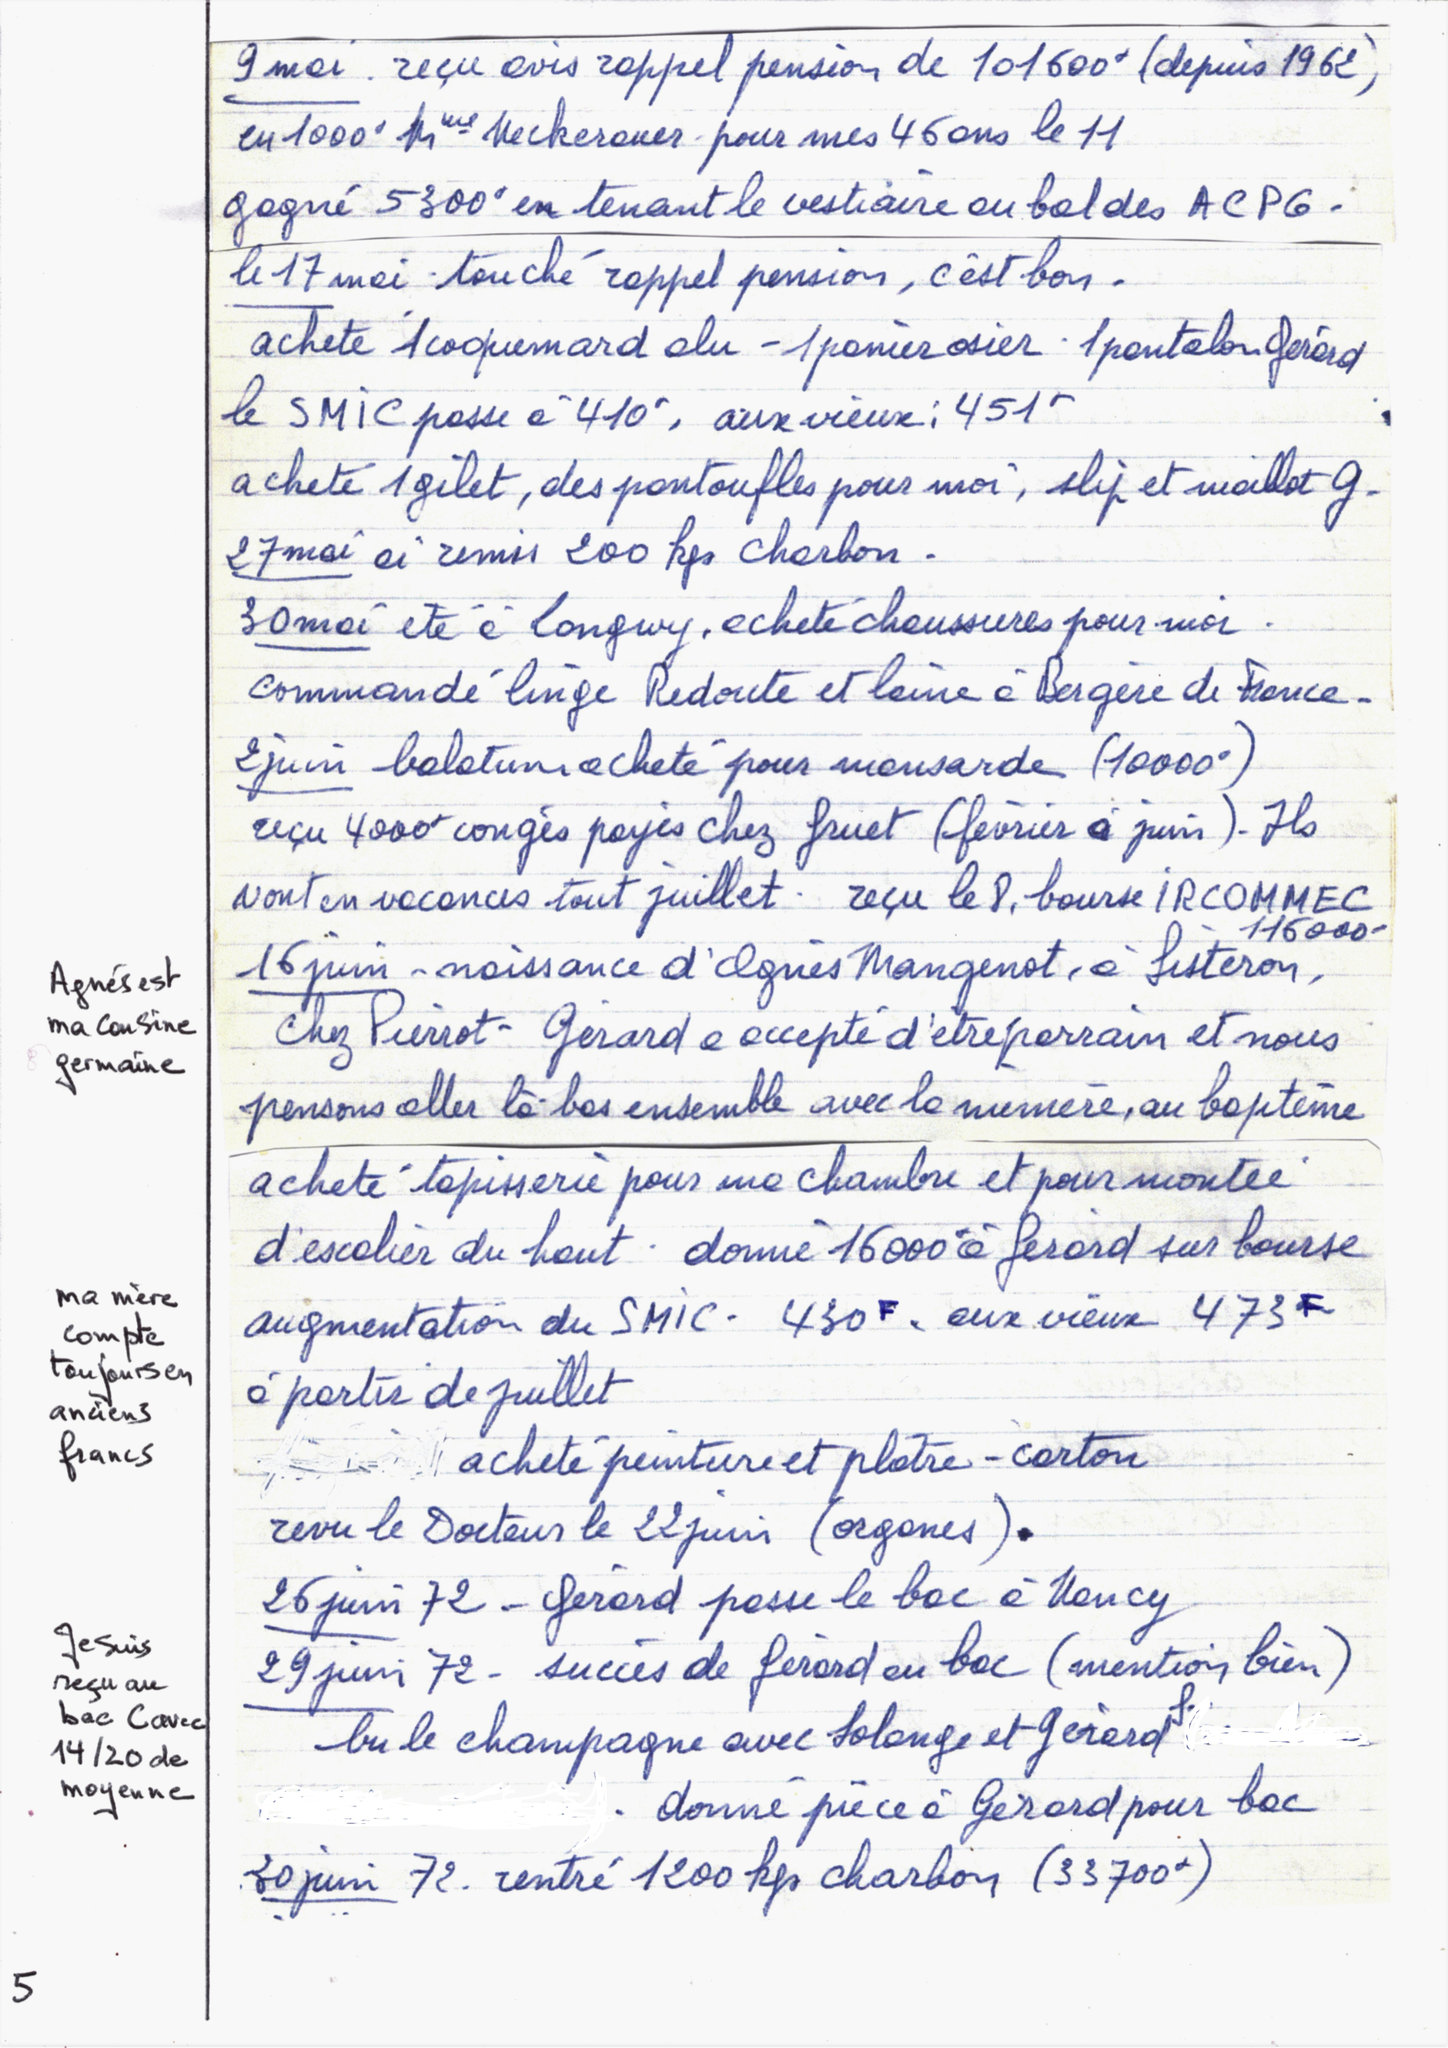 9 mai. reçu avis rappel pension de 101600F (depuis 1962)
eu 1000F Mme Neckerauer pour mes 46 ans le 11
gagné 5300F en tenant le vestiaire au bal des ACPG.
le 17 mai. touché rappel pension, c'est bon.
acheté 1 coquemard alu - 1 panier osier. 1 pantalon Gérard
le SMIC passe à 410F, aux vieux: 451F
acheté 1 gilet, des pantoufles pour moi, slip et maillot G.
27 mai ai remis 200 kgs charbon.
30 mai été à Longwy, acheté chaussures pour moi.
commandé linge Redoute et laine à Bergère de France.
2 juin balatum acheté pour mansarde (10000F)
reçu 4000F congés payés chez Gruet (février à juin). Ils
vont en vacances tout juillet. reçu le 8, bourse IRCOMMEC
116000F
16 juin - naissance d'Agnès Mangenot, à Sisteron,
chez Pierrot - Gérard a accepté d'être parrain et nous
pensons aller là-bas ensemble avec la mémère, au baptême
acheté tapisserie pour ma chambre et pour montée
d'escalier du haut. donné 16000F à Gérard sur bourse
augmentation du SMIC. 430F. aux vieux 473F
à partir de juillet
acheté peinture et platre-carton
revu le Docteur le 22 juin (organes).
26 juin 72 - Gérard passe le bac à Nancy
29 juin 72 - succès de Gérard au bac (mention bien)
bu le champagne avec Solange et Gérard S.
. donné pièce à Gérard pour bac
30 juin 72. rentré 1200 kgs charbon (33700F)
Agnés est
ma cousine
germaine
ma mère
compte
toujours en
anciens
francs
Je suis
reçu au
bac C avec
14/20 de
moyenne
5